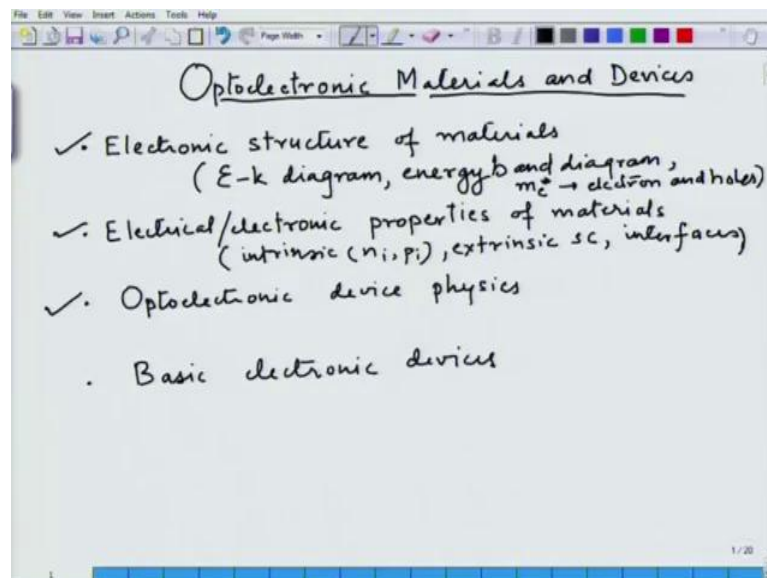 File Edit View Insert Actions Tools Help
Page Width
Optoelectronic Materials and Devices
✓. Electronic structure of materials
(E-k diagram, energy band diagram,
mₑ* → electron and holes)
✓. Electrical/electronic properties of materials
(intrinsic (nᵢ, pᵢ), extrinsic sc, interfaces)
✓. Optoelectronic device physics
. Basic electronic devices
1/20